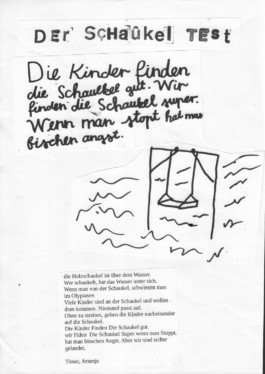 DER SCHAÛKEL TEST
Die Kinder finden
die Schaukel gut. Wir
finden die Schaukel super.
Wenn man stopt hat man
bischen angst.
die Holzschaukel ist über dem Wasser.
Wer schaukelt, hat das Wasser unter sich.
Wenn man von der Schaukel, schwimmt man
im
Viele Kinder sind an der Schaukel und wollen
dran kommen. Niemand passt auf.
Ohne zu streiten, gehen die Kinder nacheinander
auf die Schaukel.
Die Kinder Finden Die Schaukel gut
wir Fiden Die Schaukel Super wenn man Stoppt,
hat man bisschen Angst. Aber wir sind sicher
gelandet.
Timur,